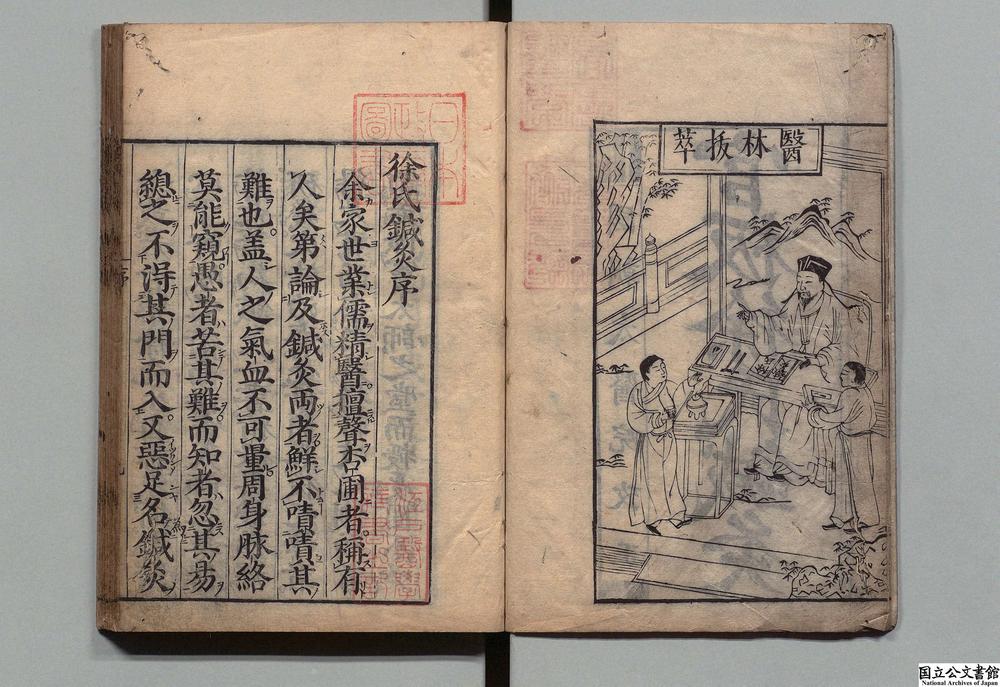 醫林拔萃
徐氏鍼灸序
余家世業儒精醫擅聲杏圃者稱有
人矣第論及鍼灸両者鮮不嘖嘖其
難也盖人之氣血不可量周身脉絡
莫能窺愚者苦其難而知者忽其易
緫之不得其門而入又惡足名鍼灸
序
国立公文書館
National Archives of Japan